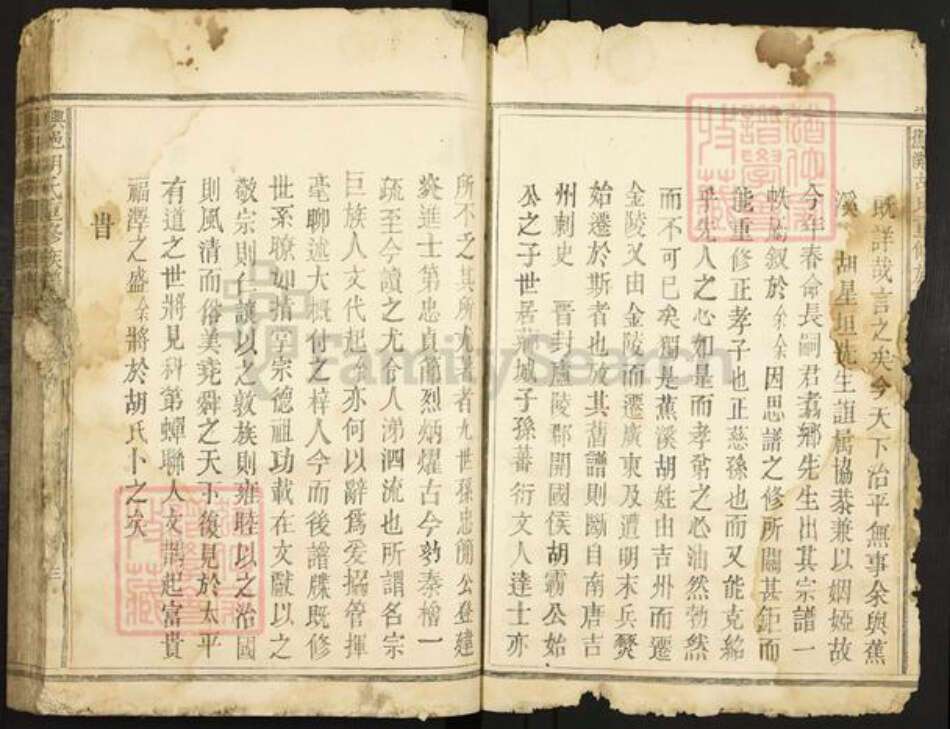 既詳哉言之矣今天下治平無事余與蕉
溪 胡星垣先生誼屬協恭兼以姻婭故
今年春命長嗣君翥鄉先生出其宗譜一
帙屬叙於余余因思譜之修所關甚鉅而
能重修正孝子也正慈孫也而又能克紹
乎先人之心如是而孝弟之心油然勃然
而不可已矣獨是蕉溪胡姓由吉州而遷
金陵又由金陵而遷廣東及遭明末兵燹
始遷於斯者也攷其舊譜則斷自南唐吉
州刺史 晋封廬陵郡開國侯胡霸公始
公之子世居城子孫蕃衍文人達士亦
所不乏其所尤著者九世孫忠簡公登建
炎進士第忠貞節烈炳燿古今劾秦檜一
疏至今讀之尤令人涕泗流也所謂名宗
巨族人文代起余亦何以辭爲爰搦管揮
毫聊述大概付之梓人今而後譜牒既修
世系瞭如指掌宗德祖功載在文獻以之
敬宗則仁讓以之敦族則雍睦以之治國
則風清而俗美堯舜之天下復見於太平
有道之世將見科第蟬聯人文鵲起富貴
福澤之盛余將於胡氏卜之矣
旹
興邑胡氏重修族譜
三
FamilySearch